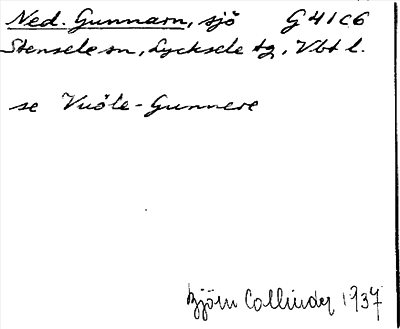 Ned. Gunnarn, sjö G41C6
Stensele sn, Lycksele tg, Vbt l.
se Vuöle-Gunnere
Björn Collinder 1937